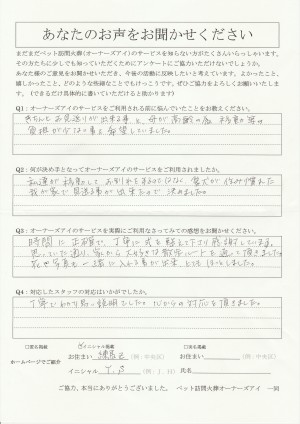 あなたのお声をお聞かせください
まだまだペット訪問火葬(オーナーズアイ)のサービスを知らない方がたくさんいらっしゃいます。
そのためにも
あなた様のご意見をお聞かせいただき、今後の活動に反映したいと考えています。よかったこと、
嬉しかったこと、どのような些細なことでもけっこうです。ぜひご協力をよろしくお願いいたします。
(できるだけ具体的に書いていただけると助かります)
Q1:オーナーズアイのサービスをご利用される前に悩んでいたことをお教えください。
きちんとお見送りが出来る事と、母が高齢の為、移動の等の
負担が少ない事を希望していました。
Q2:何が決め手となってオーナーズアイのサービスをご利用されましたか。
私達が移動してお別れをするのではなく、愛犬が住み慣れた
我が家で見送る事が出来るので決めました。
Q3:オーナーズアイのサービスを実際にご利用なさってみての感想をお聞かせください。
時間に正確で、丁寧に式を進して下さり感謝しています。
思っていた通り、家から大好きな散歩ルートを通って頂きました。
花や写真も一緒に入れる事が出来とてもほっとしました。
Q4:対応したスタッフの対応はいかがでしたか。
丁寧でわかり易い説明でした。心からの対応を頂きました。
□匿名掲載 ☑イニシャル掲載 □実名掲載
ホームページでご紹介
お住まい 練馬区 (例:中央区) お住まい (例:中央区)
イニシャル T.S (例:J.H) 氏名
ご協力、本当にありがとうございました。 ペット訪問火葬オーナーズアイ 一同